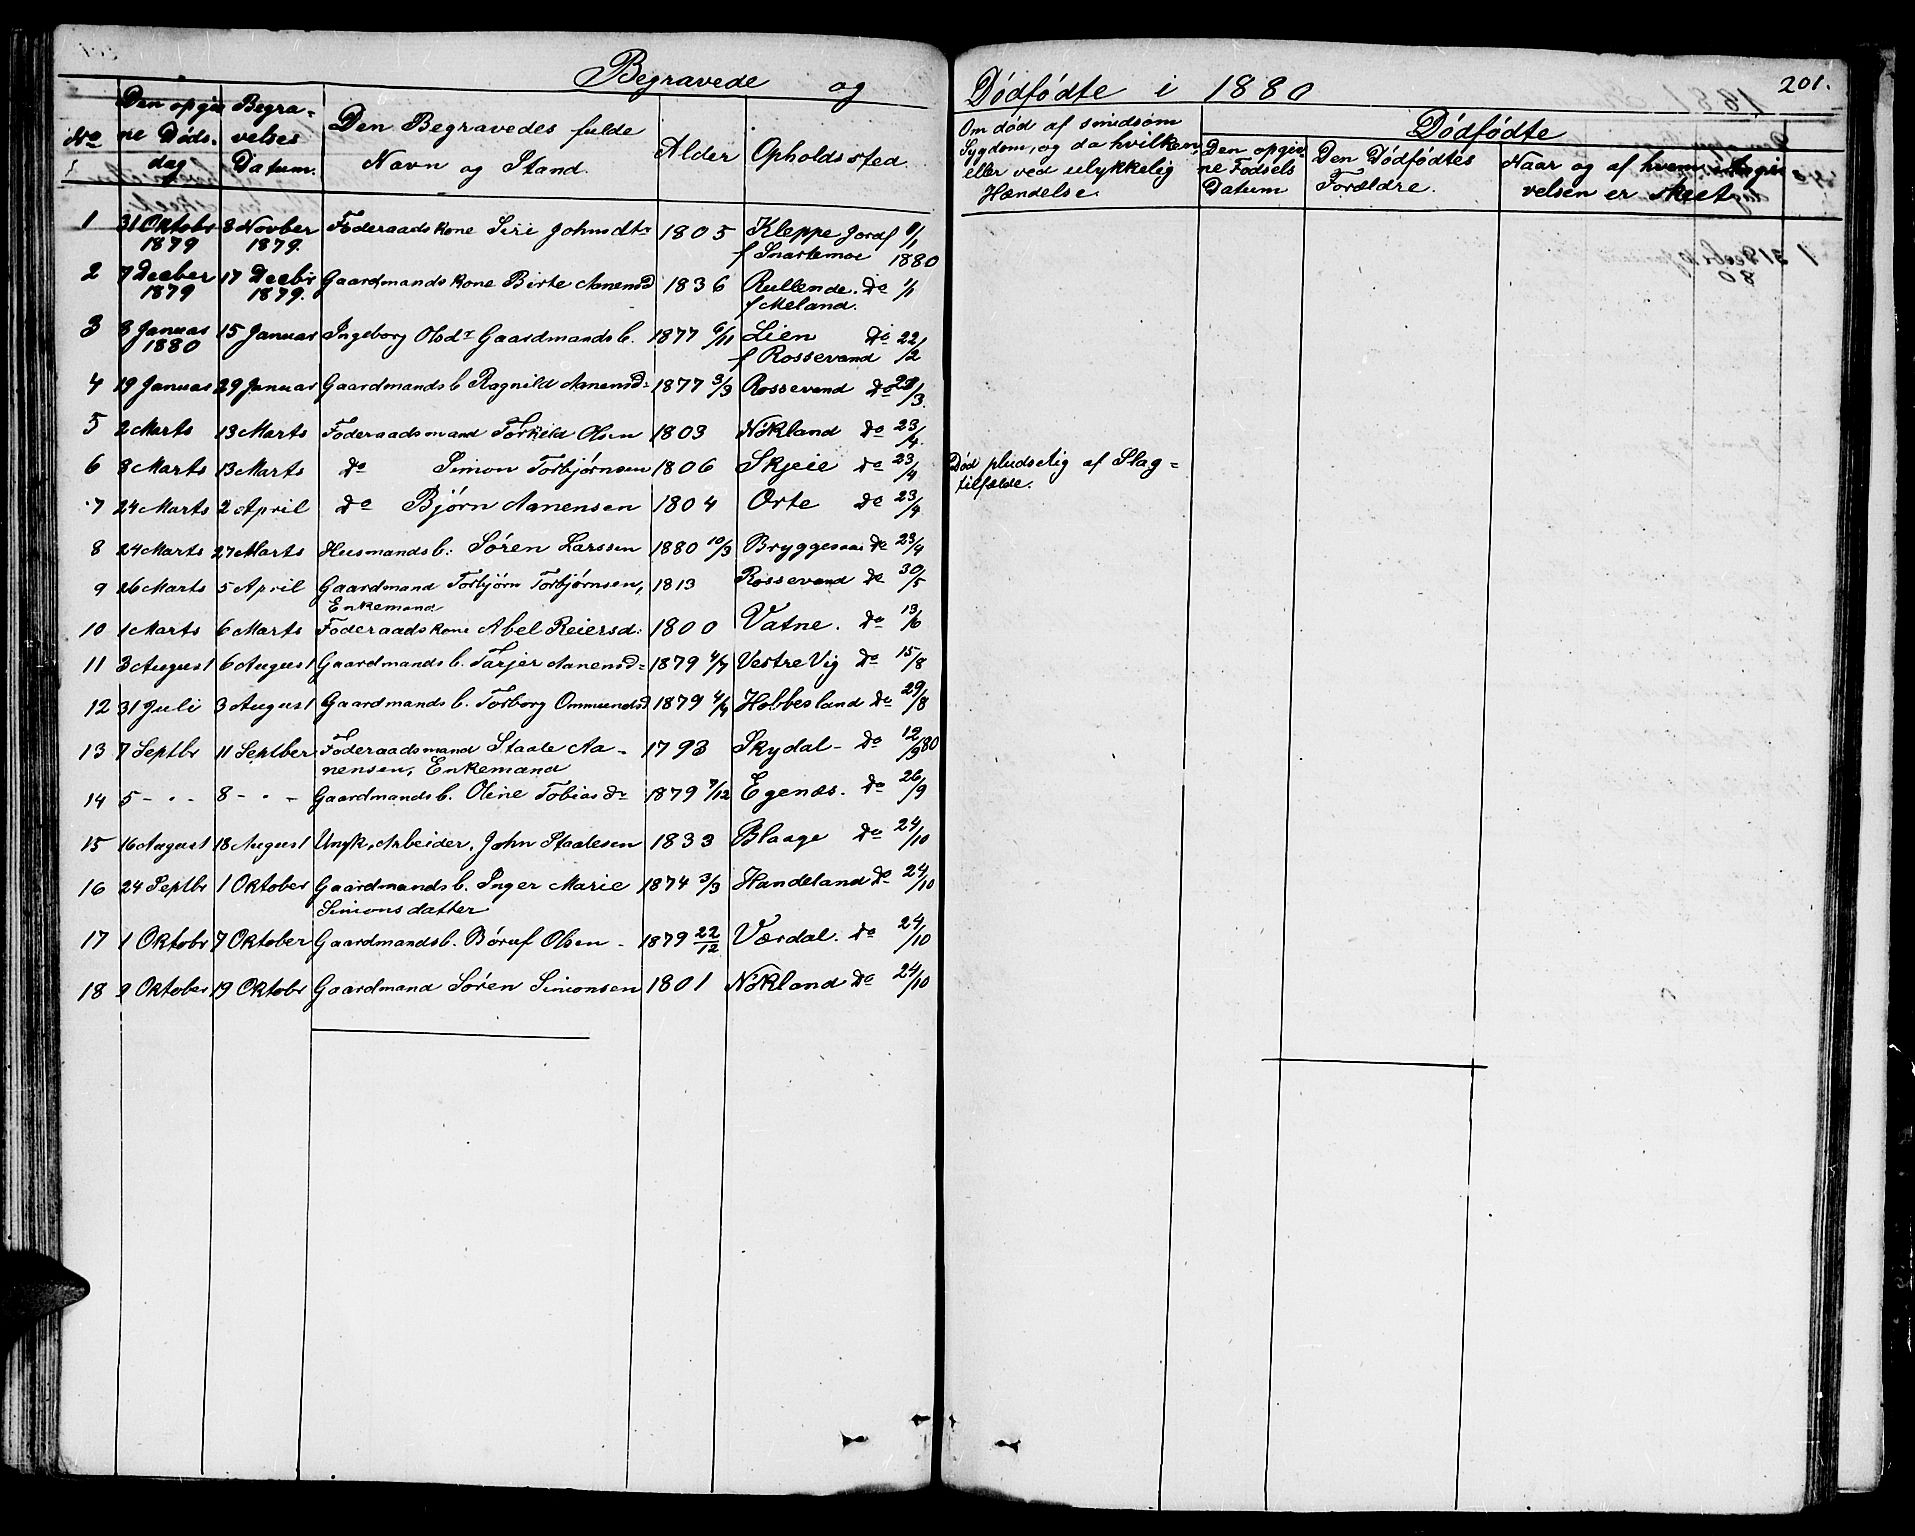 Begravede og Dødfødte i 1880 201.
No Den opgivne Dødsdag Begravelses Datum. Den Begravedes fulde Navn og Stand. Alder Opholdssted.
Om død af smidsom Sygdom, og da hvilken eller ved ulykkelig Hændelse.
Dødfødte
Den opgivne Fødsels Datum Den Dødfødtes Forældre. Naar og af hvem Angivelsen er skeet
1 31 Oktobr 8 Novber Føderaadskone Siri Johnsdtr 1805 Kleppe Jordf 9/1
1879 1879. f Snartemoe 1880
2 7 Decber 17 Decbr Gaardmandskone Birte Aanensd 1836 Rullende. do 1/1
1879 1879. f Meland.
3 8 Januar 15 Januar Ingeborg Olsdr Gaardmandsb. 1877 6/11 Lien do 22/2
1880 f Rossevand
4 19 Januar 29 Januar Gaardmandsb Ragnild Aanensd. 1877 3/3 Rossevand do 29/3.
5 2 Marts 13 Marts Føderaadsmand Torkild Olsen 1803 Nökland do 23/4.
6 8 Marts 13 Marts do Simon Torbjørnsen 1806 Skjeie do 23/4 Død pludselig af Slag=
tilfælde.
7 24 Marts 2 April do Bjørn Aanensen 1804 Orte do 23/4
8 24 Marts 27 Marts Husmandsb: Søren Larssen 1880 10/3 Bryggesaa do 23/4
9 26 Marts 5 April Gaardmand Torbjørn Torbjørnsen, 1813 Rossevand do 30/5
Enkemand
10 1 Marts 6 Marts Føderaadskone Abel Reiersd: 1800 Vatne. do 13/6
11 3 August 6 August Gaardmandsb. Tarjer Aanensd= 1879 4/7 Vestre Vig do 15/8
12 31 Juli 3 August Gaardmandsb. Torborg Ommundsd 1879 4/4 Hobbesland do 29/8
13 7 Septbr 11 Septber Føderaadsmand Staale Aa- 1793 Skydal- do 12/9 80
nensen, Enkemand
14 5 - . - 8 - . - Gaardmandsb. Oline Tobiasdr 1879 7/12 Egenæs. do 26/9
15 16 August 18 August Ungk, Arbeider, John Staalesen 1833 Blaage do 24/10
16 24 Septbr 1 Oktober Gaardmandsb. Inger Marie 1874 3/3 Handeland do 24/10
Simonsdatter
17 1 Oktobr 7 Oktober Gaardmandsb. Böruf Olsen - 1879 22/12 Værdal. do 24/10
18 9 Oktober 19 Oktobr Gaardmand Søren Simonsen 1801 Nökland do 24/10